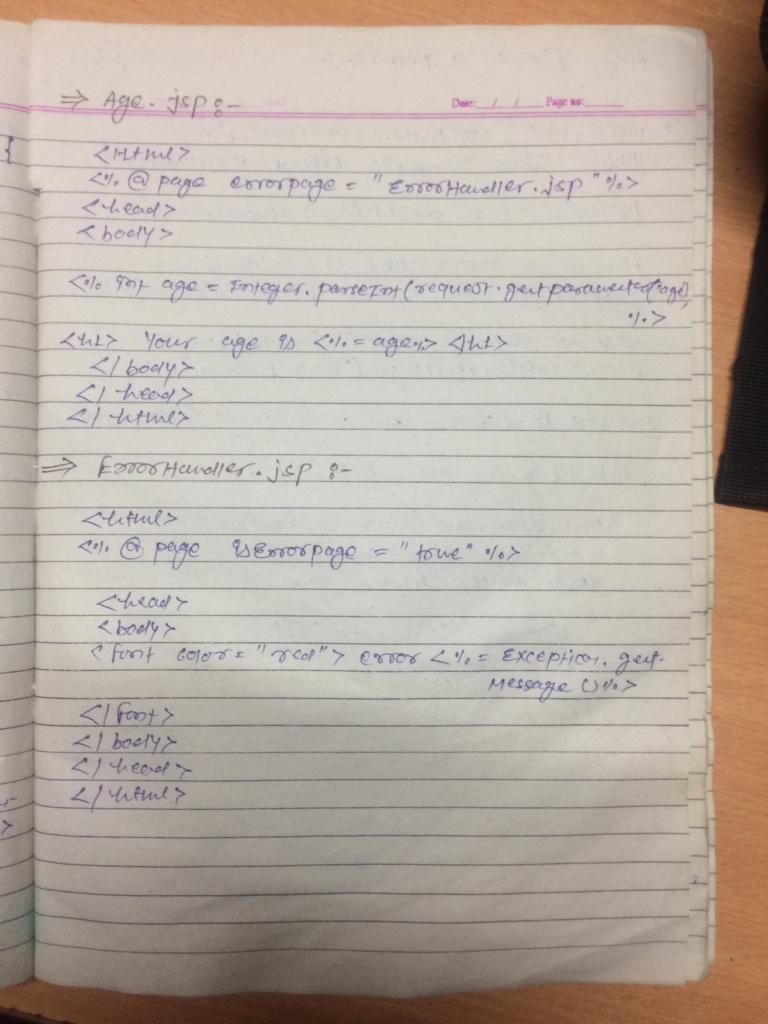 ⇒ Age.jsp :-
Date: / / Page no:
{
<Html>
<% @ page errorpage = "ErrorHandler.jsp" %>
<head>
<body>
<% Int age = Integer.parseInt(request.getparameter("age)
%>
<h1> Your age is <% = age%> </h1>
</body>
</head>
</html>
⇒ ErrorHandler.jsp :-
<html>
<% @ page isErrorpage = "true" %>
<head>
<body>
<font color = "red"> error <% = Exception.get-
Message ()%>
</font>
</body>
</head>
</html>
>